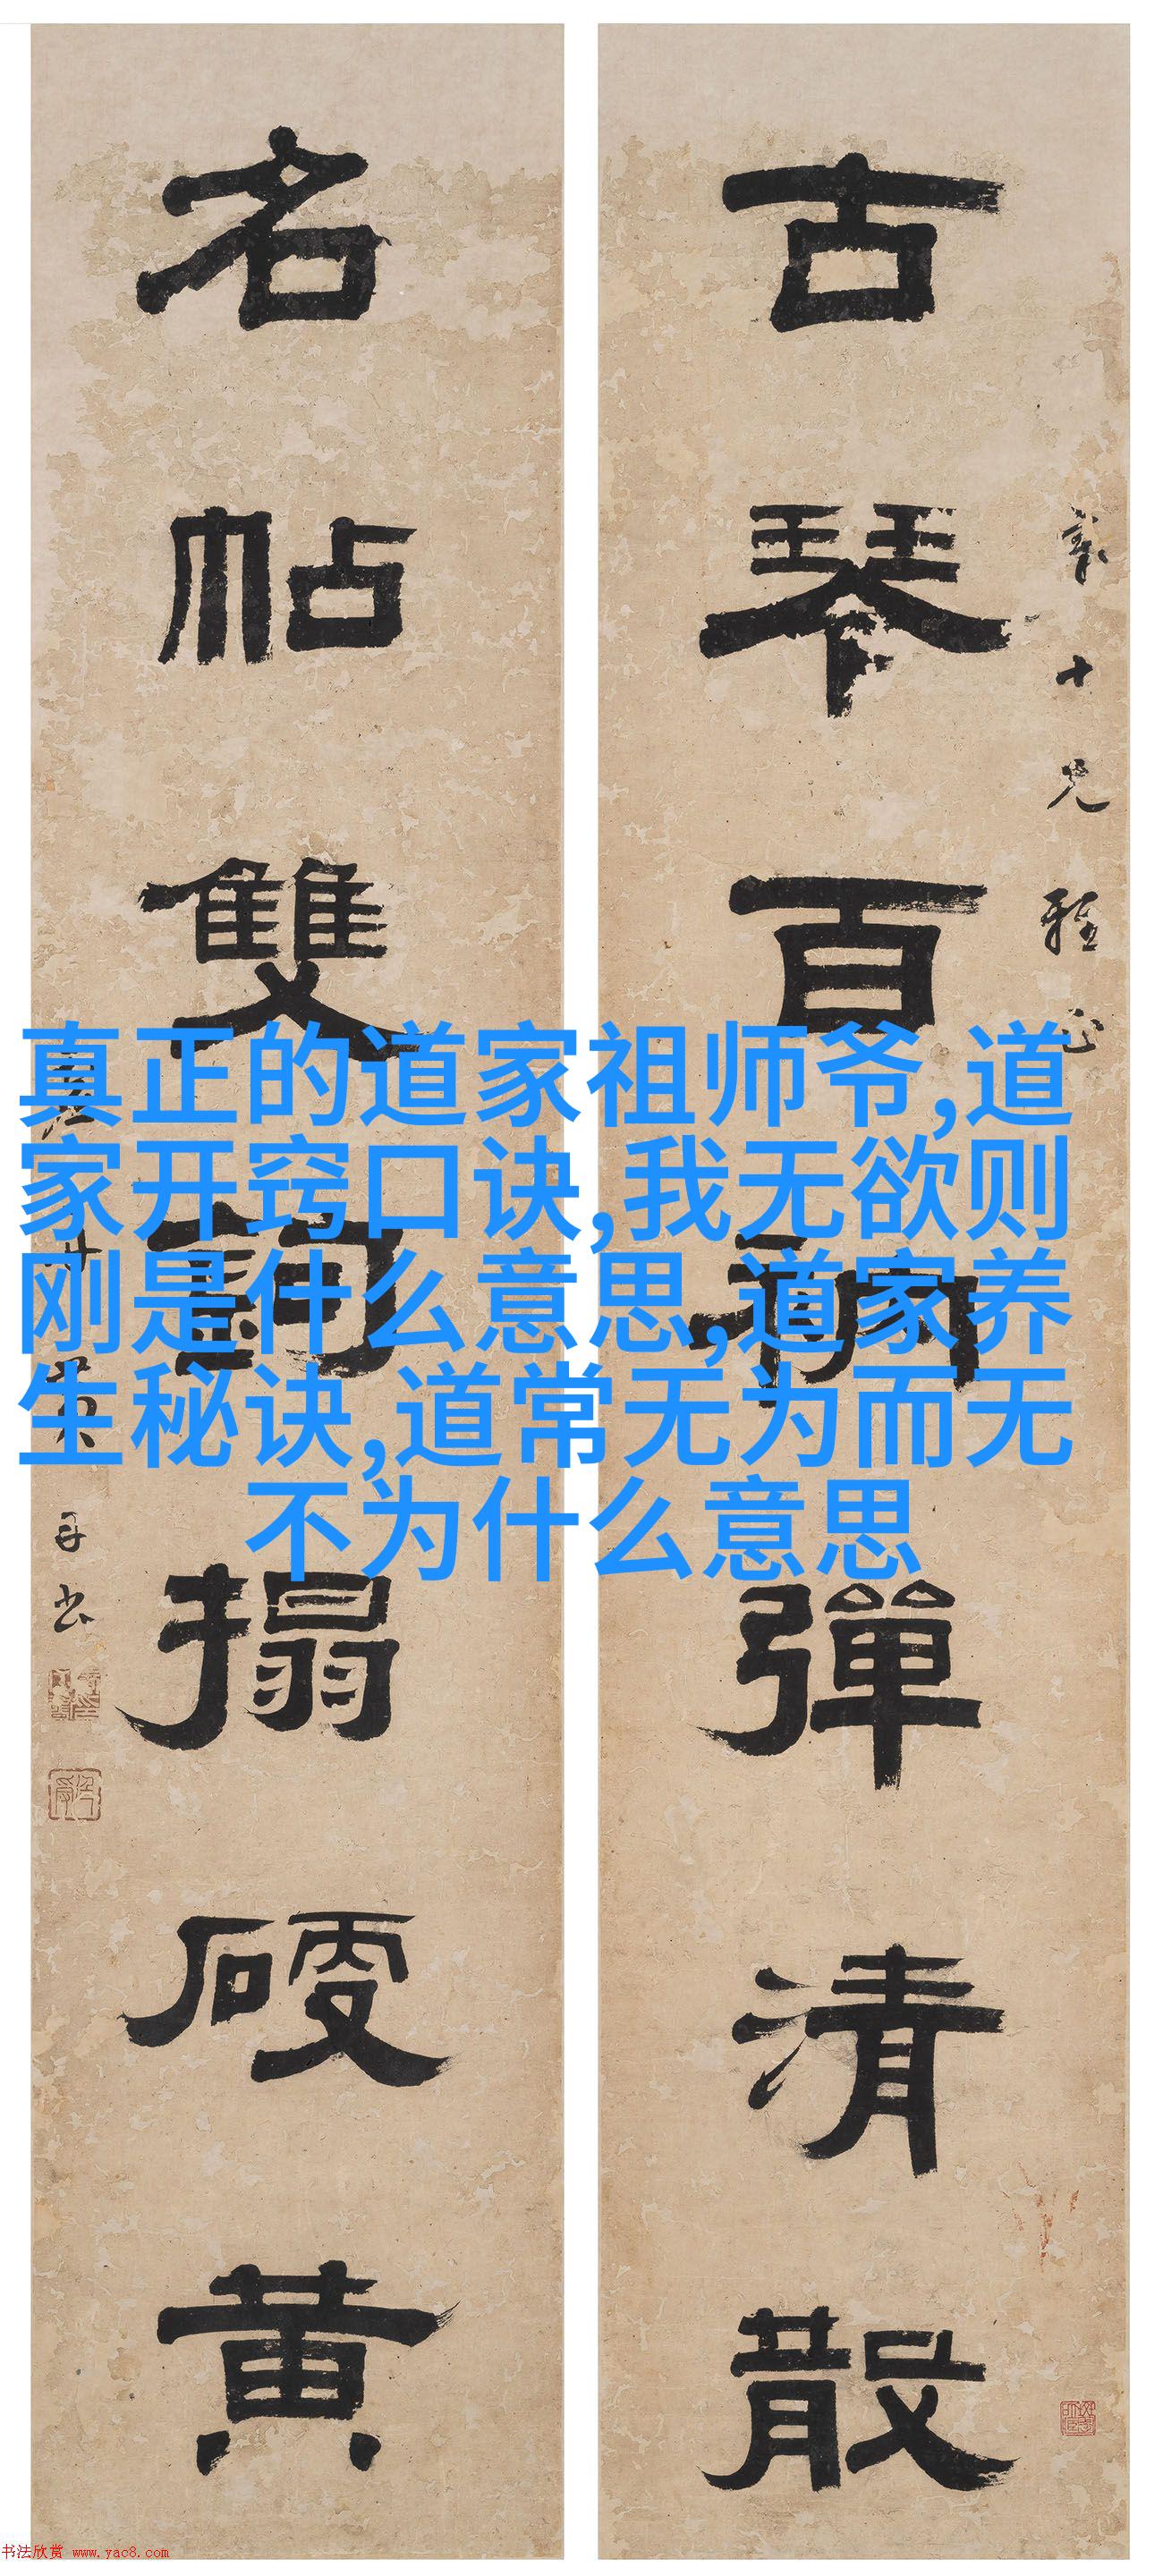 古琴百衲彈清散
名帖雙鉤搨硬黄
十兄雅正
弟
書
真正的道家祖师爷,道
家开窍口诀,我无欲则
刚是什么意思,道家养
生秘诀,道常无为而无
不为什么意思
书法欣赏 www.yac8.com